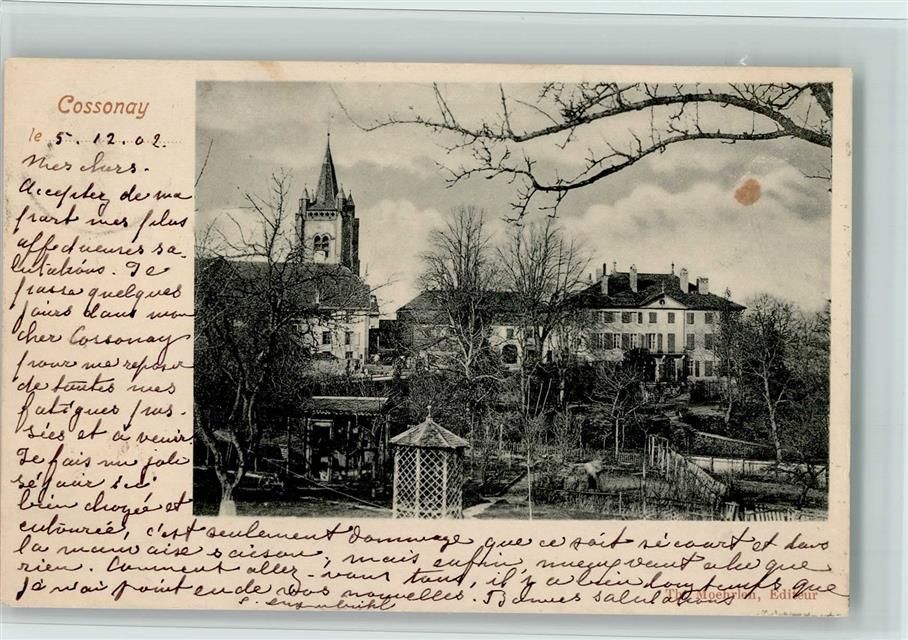 Cossonay
le 5. 12. 02.
Mes chers.
Acceptez de ma
part mes plus
affectueuses sa-
lutations. Je
passe quelques
jours dans mon
cher Cossonay
pour me reposer
de toutes mes
fatigues pas-
sées et à venir.
Je fais un joli
séjour ici
bien choyée et
entourée, c'est seulement dommage que ce soit si court et dans
la mauvaise saison, mais enfin, mieux vaut cela que
rien. Comment allez-vous tous, il y a bien longtemps que
je n'ai point eu de vos nouvelles. Bonnes salutations
Th. Moehrlen, Editeur